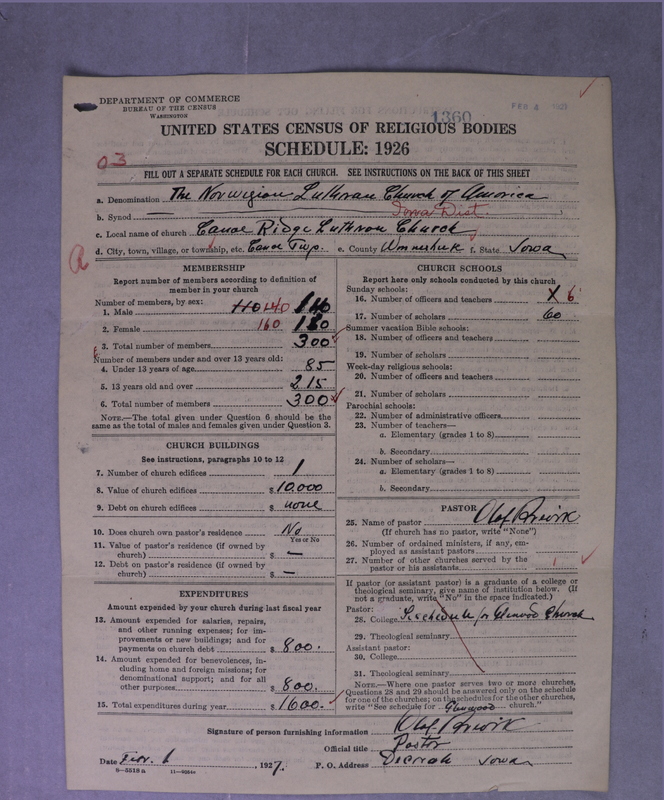 DEPARTMENT OF COMMERCE
BUREAU OF THE CENSUS
WASHINGTON
1360
FEB 4 1927
UNITED STATES CENSUS OF RELIGIOUS BODIES
SCHEDULE: 1926
03
FILL OUT A SEPARATE SCHEDULE FOR EACH CHURCH. SEE INSTRUCTIONS ON THE BACK OF THIS SHEET
a. Denomination The Norwegian Lutheran Church of America
b. Synod Iowa Dist.
c. Local name of church Canoe Ridge Lutheran Church
d. City, town, village, or township, etc. Canoe Twp. e. County Winneshiek f. State Iowa
MEMBERSHIP
Report number of members according to definition of
member in your church
Number of members, by sex:
1. Male 110 140
2. Female 160
3. Total number of members 300
Number of members under and over 13 years old:
4. Under 13 years of age 85
5. 13 years old and over 215
6. Total number of members 300
NOTE.—The total given under Question 6 should be the
same as the total of males and females given under Question 3.
CHURCH BUILDINGS
See instructions, paragraphs 10 to 12
7. Number of church edifices 1
8. Value of church edifices $ 10,000
9. Debt on church edifices $ none
10. Does church own pastor's residence No
Yes or No
11. Value of pastor's residence (if owned by
church) $ —
12. Debt on pastor's residence (if owned by
church) $ —
EXPENDITURES
Amount expended by your church during last fiscal year
13. Amount expended for salaries, repairs,
and other running expenses; for im-
provements or new buildings; and for
payments on church debt $ 800.
14. Amount expended for benevolences, in-
cluding home and foreign missions; for
denominational support; and for all
other purposes $ 800.
15. Total expenditures during year $ 1600.
CHURCH SCHOOLS
Report here only schools conducted by this church
Sunday schools:
16. Number of officers and teachers X 6
17. Number of scholars 60
Summer vacation Bible schools:
18. Number of officers and teachers
19. Number of scholars
Week-day religious schools:
20. Number of officers and teachers
21. Number of scholars
Parochial schools:
22. Number of administrative officers
23. Number of teachers—
a. Elementary (grades 1 to 8)
b. Secondary
24. Number of scholars—
a. Elementary (grades 1 to 8)
b. Secondary
PASTOR
25. Name of pastor Olaf
(If church has no pastor, write "None")
26. Number of ordained ministers, if any, em-
ployed as assistant pastors
27. Number of other churches served by the
pastor or his assistants 1
If pastor (or assistant pastor) is a graduate of a college or
theological seminary, give name of institution below. (If
not a graduate, write "No" in the space indicated.)
Pastor:
28. College See schedule for Glenwood Church
29. Theological seminary
Assistant pastor:
30. College
31. Theological seminary
NOTE.—Where one pastor serves two or more churches,
Questions 28 and 29 should be answered only on the schedule
for one of the churches; on the schedules for the other churches,
write "See schedule for Glenwood church."
Signature of person furnishing information Olaf
Official title Pastor
Date 1, 1927. P. O. Address Decorah Iowa
8-5518a